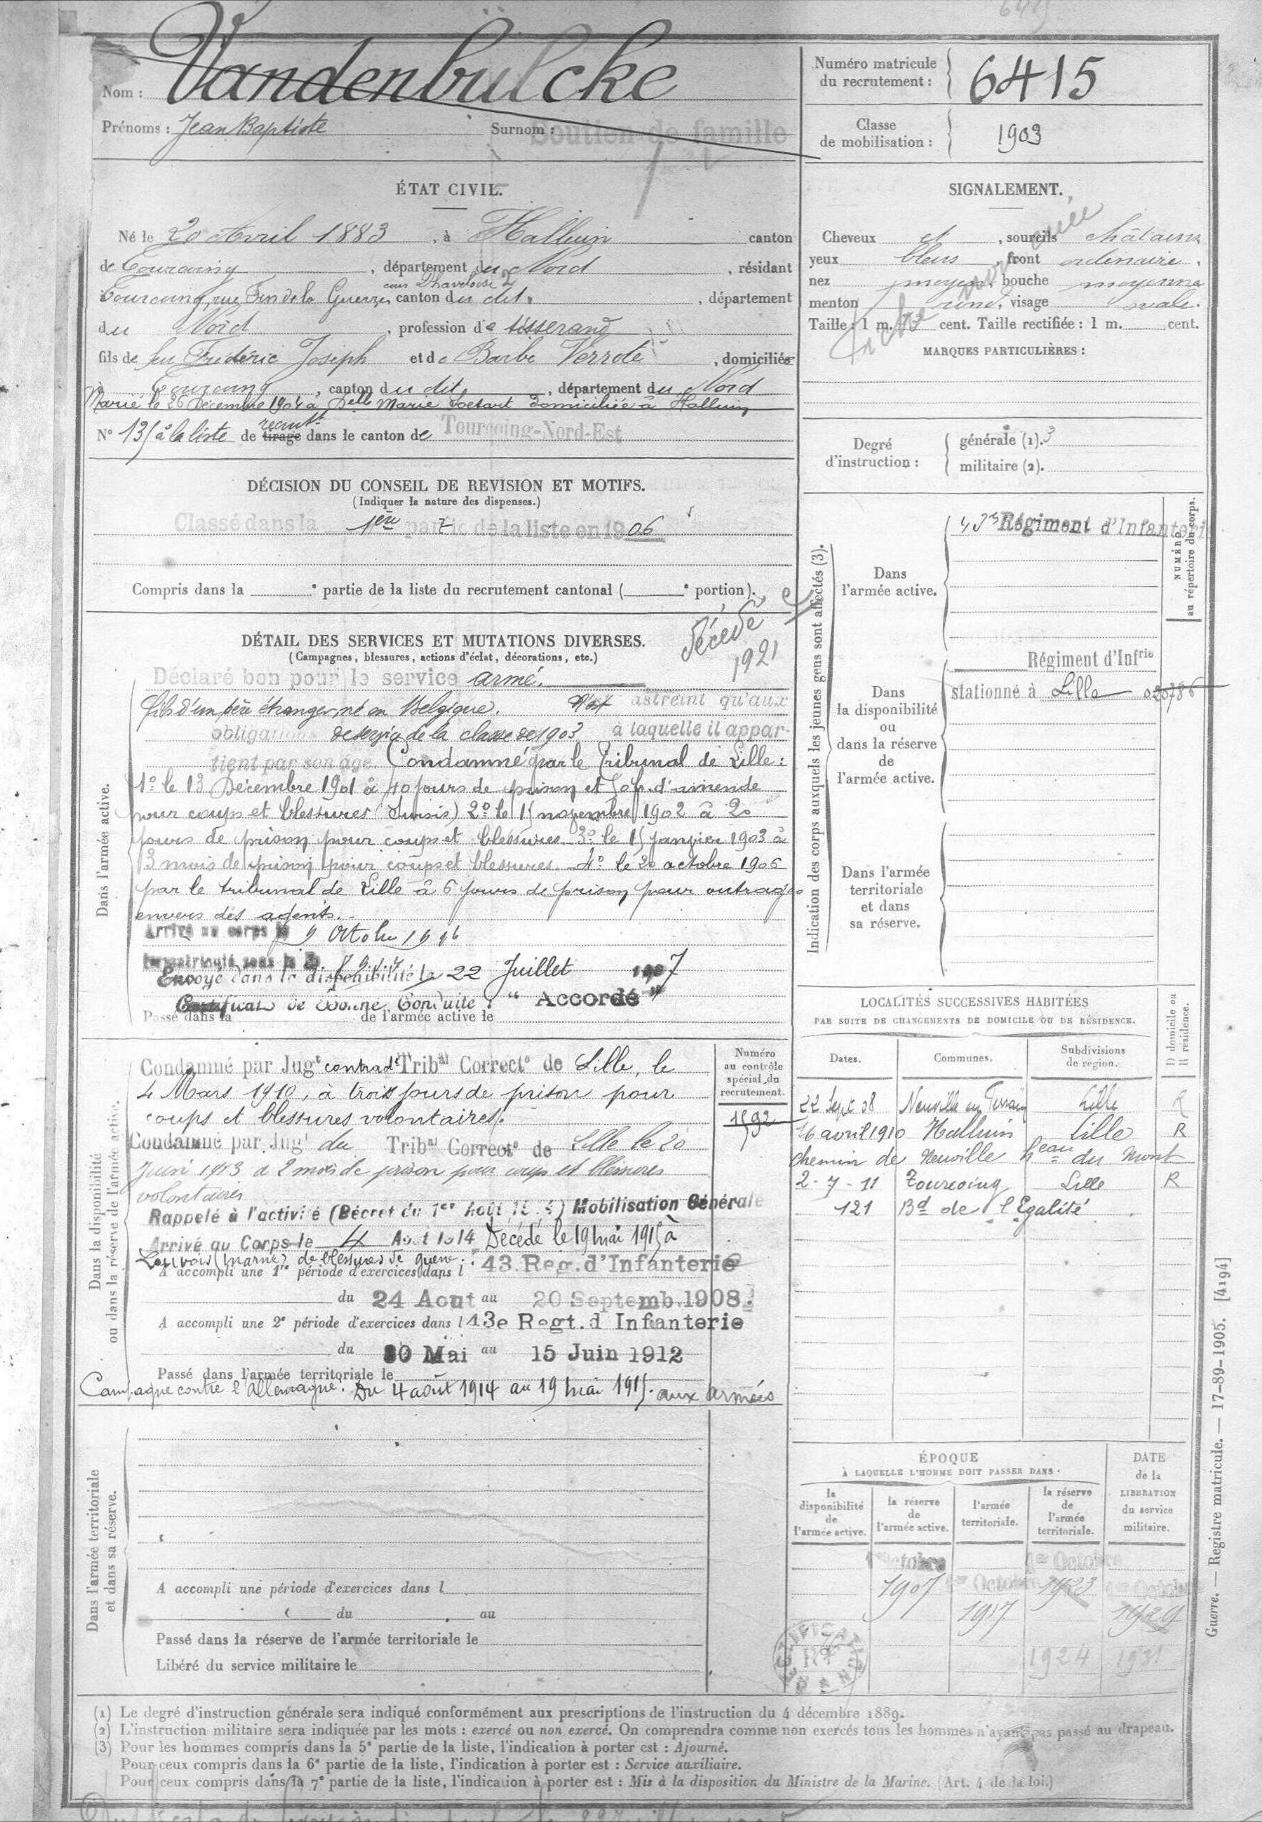 Nom : Vandenbulcke
Prénoms : Jean Baptiste Surnom : Soutien de famille
Numéro matricule du recrutement : 6415
Classe de mobilisation : 1903
ÉTAT CIVIL.
Né le 20 Avril 1883, à Halluin canton
de Tourcoing, département du Nord, résidant
Tourcoing, rue Fin de la Guerre, canton du dit, département
du Nord, profession de tisserand
fils de feu Frédéric Joseph et de Barbe Verrote, domiciliés
à Tourcoing, canton du dit, département du Nord
Marié le 26 Décembre 1904 à Delle Marie domiciliée à Halluin
N° 135 à la liste de recrut. tirage dans le canton de Tourcoing-Nord-Est
SIGNALEMENT.
Cheveux et, sourcils châtains
yeux bleus, front ordinaire,
nez moyen, bouche moyenne
menton rond, visage ovale.
Taille : 1 m. 73 cent. Taille rectifiée : 1 m. cent.
MARQUES PARTICULIÈRES :
Degré d'instruction : générale (1). 3
militaire (2).
DÉCISION DU CONSEIL DE REVISION ET MOTIFS.
(Indiquer la nature des dispenses.)
Classé dans la 1ère partie de la liste en 1906
Compris dans la e partie de la liste du recrutement cantonal ( e portion).
décédé
1921
DÉTAIL DES SERVICES ET MUTATIONS DIVERSES.
(Campagnes, blessures, actions d'éclat, décorations, etc.)
Dans l'armée active.
Déclaré bon pour le service armé.
fils d'un père étranger né en Belgique. N'est astreint qu'aux
obligations de service de la classe de 1903 à laquelle il appar-
tient par son âge. Condamné par le Tribunal de Lille :
1° le 13 Décembre 1901 à 40 jours de prison et 50 f. d'amende
pour coups et blessures (Sursis) 2° le 15 novembre 1902 à 20
jours de prison pour coups et blessures. 3° le 15 janvier 1903 à
3 mois de prison pour coups et blessures. 4° le 20 octobre 1906
par le tribunal de Lille à 6 jours de prison pour outrages
envers des agents.
Arrivé au corps le 9 Octobre 1906
Immatriculé sous le
Envoyé dans la disponibilité le 22 Juillet 1907
Certificat de Bonne Conduite : "Accordé"
Passé dans la de l'armée active le
Dans la disponibilité
ou dans la réserve de l'armée active.
Numéro au contrôle spécial du recrutement.
1592
Condamné par Jugt contradt Tribal Correctl de Lille, le
4 Mars 1910, à trois jours de prison pour
coups et blessures volontaires.
Condamné par Jugt du Tribal Correctl de Lille le 20
Juin 1913 à 2 mois de prison pour coups et blessures
volontaires
Rappelé à l'activité (Décret du 1er Août 1914) Mobilisation Générale
Arrivé au Corps le 4 Août 1914 Décédé le 19 mai 1915 à
(Marne) de blessures de guerre.
A accompli une 1re période d'exercices dans l 43 Reg. d'Infanterie
du 24 Aout au 20 Septemb. 1908.
A accompli une 2e période d'exercices dans l 43e Regt. d Infanterie
du 30 Mai au 15 Juin 1912
Passé dans l'armée territoriale le
Campagne contre l'allemagne. Du 4 août 1914 au 19 mai 1915. aux armées
Dans l'armée territoriale
et dans sa réserve.
A accompli une période d'exercices dans l
du au
Passé dans la réserve de l'armée territoriale le
Libéré du service militaire le
Indication des corps auxquels les jeunes gens sont affectés (3).
NUMÉRO au répertoire du corps.
Dans l'armée active.
43e Régiment d'Infanterie
Dans la disponibilité ou dans la réserve de l'armée active.
Régiment d'Infrie
stationné à Lille
Dans l'armée territoriale et dans sa réserve.
LOCALITÉS SUCCESSIVES HABITÉES
PAR SUITE DE CHANGEMENTS DE DOMICILE OU DE RÉSIDENCE.
Dates. Communes. Subdivisions de région. D domicile ou R résidence.
22 Sept 08 Neuville en Ferrain Lille R
16 avril 1910 Halluin Lille R
chemin de Neuville heau du Mont
2-7-11 Tourcoing Lille R
121 Bd de l'Egalité
ÉPOQUE
À LAQUELLE L'HOMME DOIT PASSER DANS
DATE de la LIBÉRATION du service militaire.
la disponibilité de l'armée active. la réserve de l'armée active. l'armée territoriale. la réserve de l'armée territoriale.
1er Octobre 1907
1er Octobre 1917
1er Octobre 1923
1er Octobre 1929
1924 1931
Guerre. — Registre matricule. — 17-89-1905. [4194]
(1) Le degré d'instruction générale sera indiqué conformément aux prescriptions de l'instruction du 4 décembre 1889.
(2) L'instruction militaire sera indiquée par les mots : exercé ou non exercé. On comprendra comme non exercés tous les hommes n'ayant pas passé au drapeau.
(3) Pour les hommes compris dans la 5e partie de la liste, l'indication à porter est : Ajourné.
Pour ceux compris dans la 6e partie de la liste, l'indication à porter est : Service auxiliaire.
Pour ceux compris dans la 7e partie de la liste, l'indication à porter est : Mis à la disposition du Ministre de la Marine. (Art. 4 de la loi.)